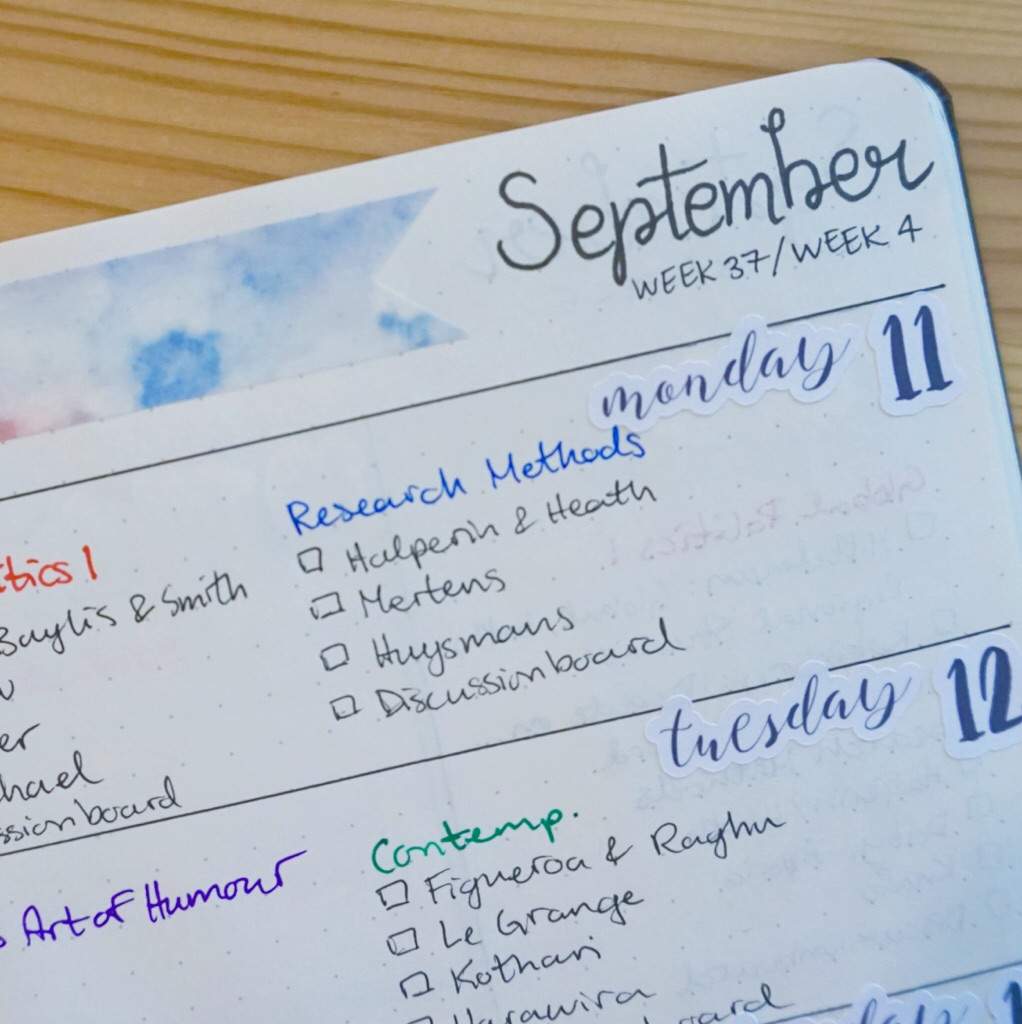 September
WEEK 37/WEEK 4
monday 11
Research Methods
Halperin & Heath
Mertens
Huysmans
Discussionboard
itics 1
Baylis & Smith
er
hael
ssionboard
tuesday 12
Contemp.
Figueroa & Raghu
Le Grange
Kothari
Harawira
oard
s Art of Humour
day 1